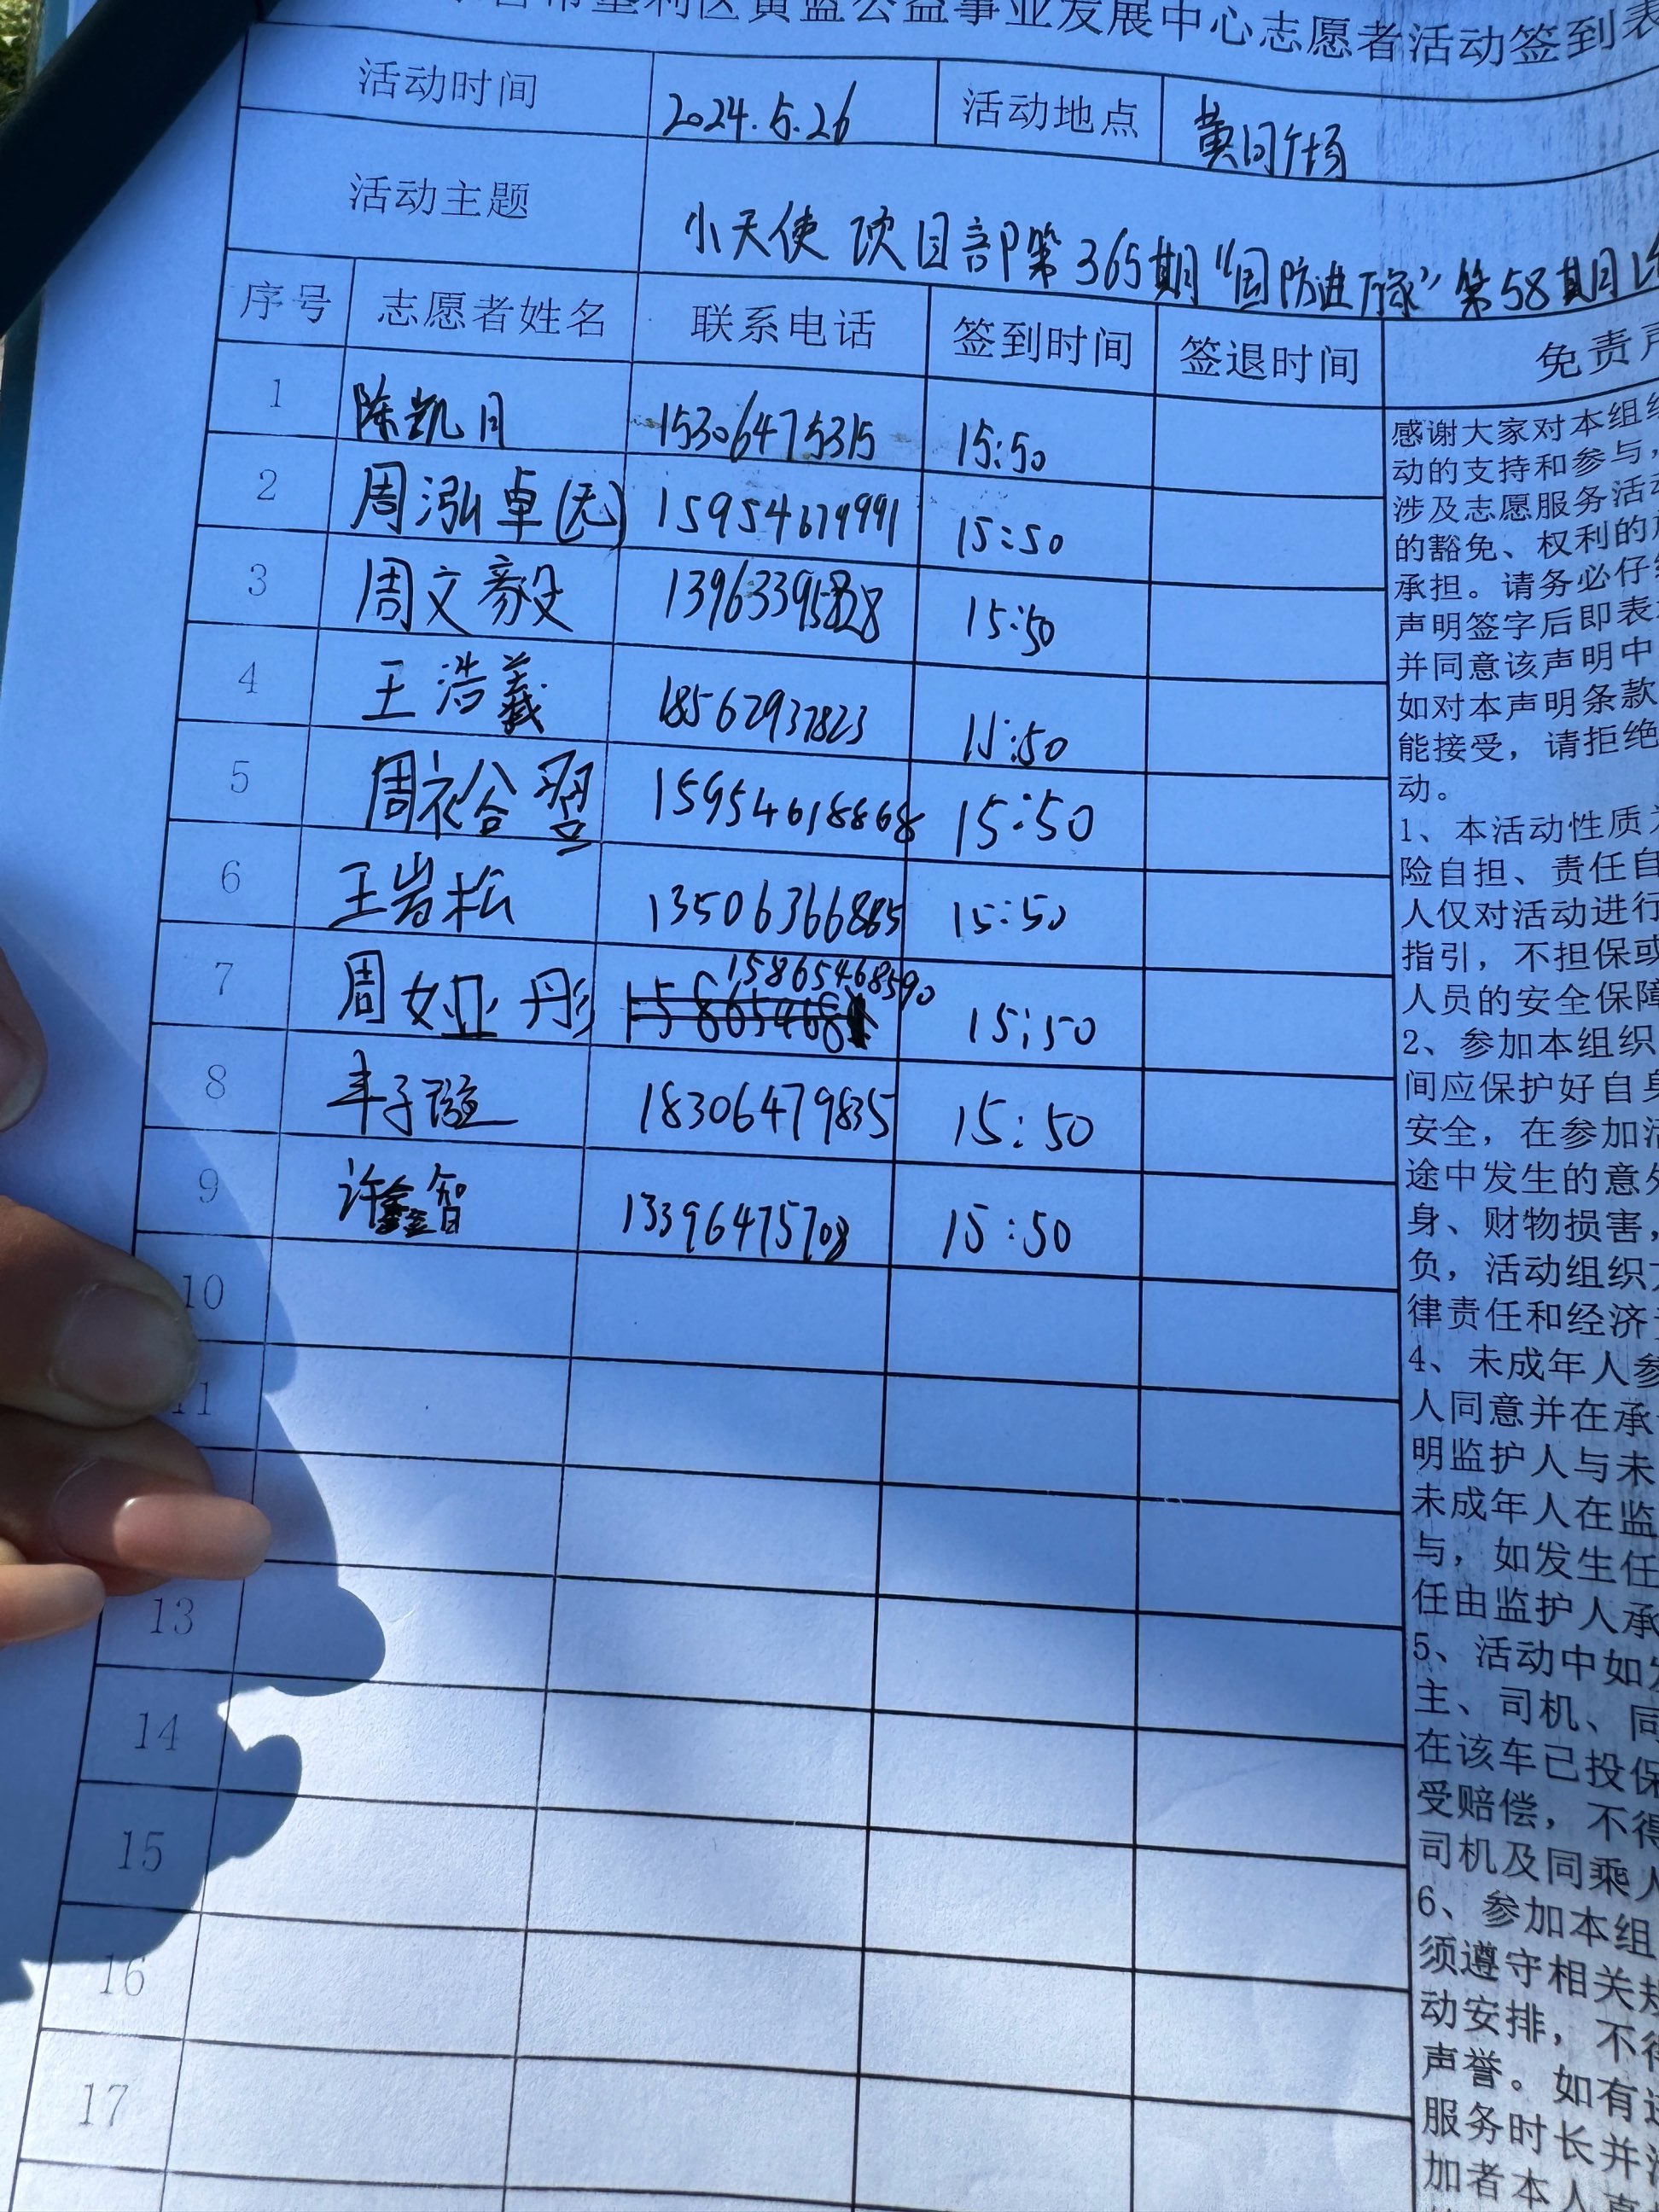 营市垦利区黄蓝公益事业发展中心志愿者活动签到表
活动时间 2024.5.26 活动地点 黄河广场
活动主题 小天使 项目部第365期“国防进万家”第58期
序号 志愿者姓名 联系电话 签到时间 签退时间 免责声
1 陈凯月 15306475315 15:50
2 周泓卓(无) 15954679991 15:50
3 周文毅 15:50
4 王浩羲 18562937823 15:50
5 周裕翌 15954618868 15:50
6 王岩松 13506366885 15:50
7 周娅彤 15865468590 15:50
8 丰子璇 18306479835 15:50
9 许鑫智 13396475708 15:50
10
11
13
14
15
16
17
感谢大家对本组织
动的支持和参与，
涉及志愿服务活动
的豁免、权利的放
承担。请务必仔细
声明签字后即表
并同意该声明中
如对本声明条款
能接受，请拒绝
动。
1、本活动性质为
险自担、责任自
人仅对活动进行
指引，不担保或
人员的安全保障
2、参加本组织
间应保护好自身
安全，在参加活
途中发生的意外
身、财物损害，
负，活动组织方
律责任和经济责
4、未成年人参
人同意并在承
明监护人与未
未成年人在监
与，如发生任
任由监护人承
5、活动中如发
主、司机、同
在该车已投保
受赔偿，不得
司机及同乘人
6、参加本组
须遵守相关规
动安排，不得
声誉。如有违
服务时长并
加者本人